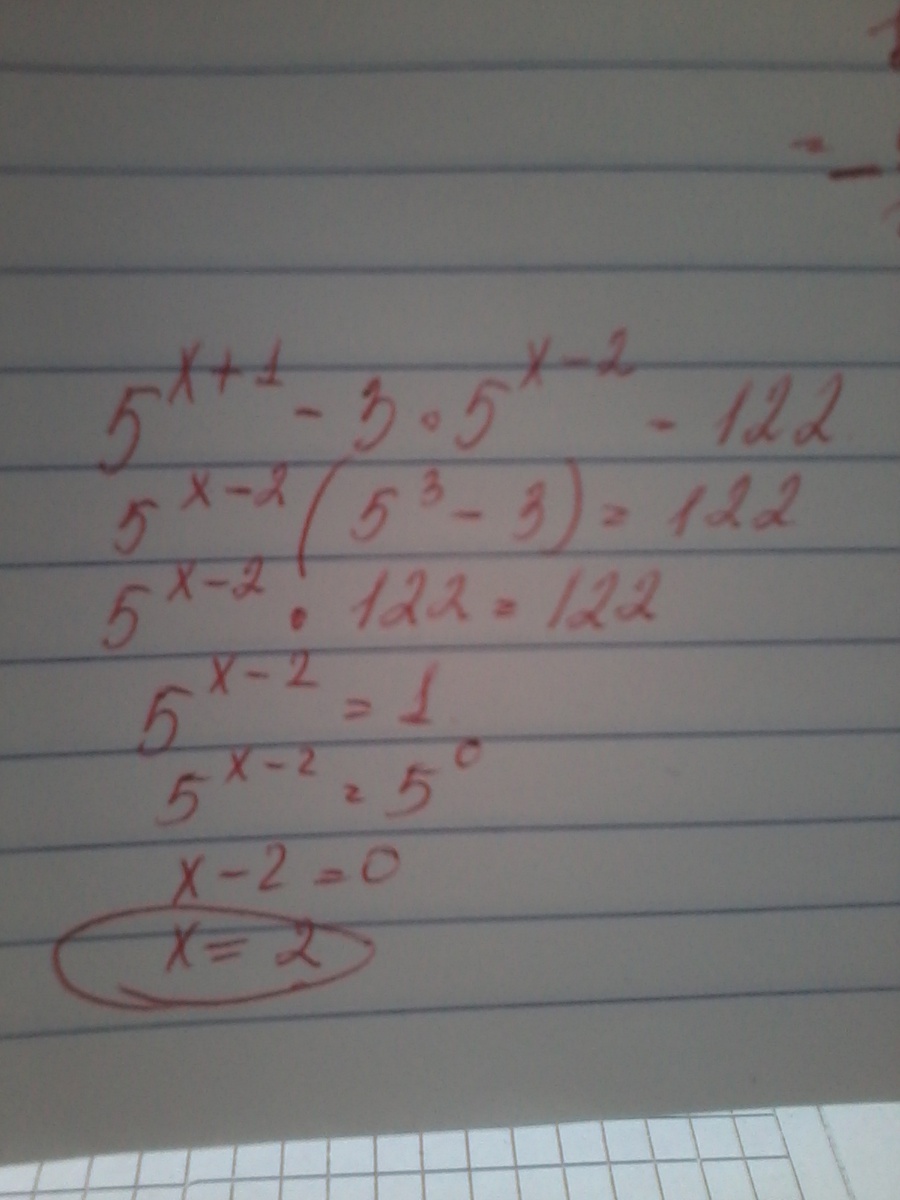 5^{x+1} - 3 · 5^{x-2} - 122
5^{x-2} (5^3 - 3) = 122
5^{x-2} · 122 = 122
5^{x-2} = 1
5^{x-2} = 5^0
x - 2 = 0
x = 2